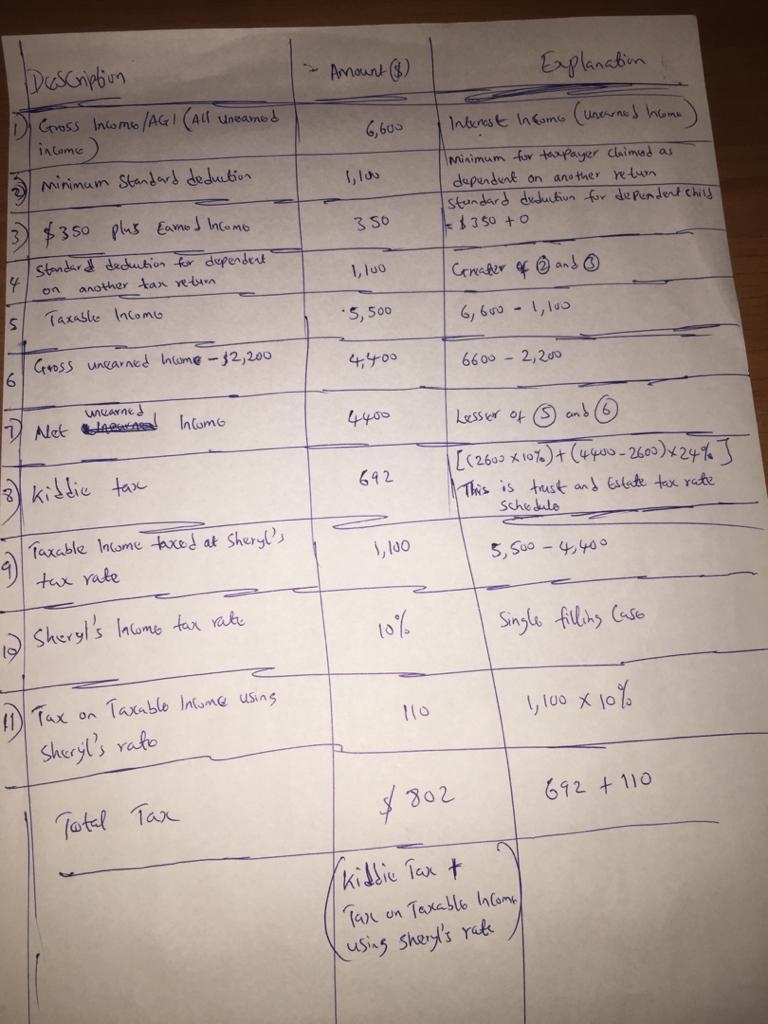 Description
~ Amount ($)
Explanation
1) Gross Income/AGI (All unearned
income)
6,600
Interest Income (unearned Income)
2) Minimum Standard deduction
1,100
Minimum for taxpayer claimed as
dependent on another return
3) $350 plus Earned Income
350
Standard deduction for dependent child
= $350 + 0
4 Standard deduction for dependent
on another tax return
1,100
Greater of ② and ③
5 Taxable Income
5,500
6,600 - 1,100
6 Gross unearned Income - $2,200
4,400
6600 - 2,200
7) Net unearned Income
4400
Lesser of ⑤ and ⑥
8) Kiddie tax
692
[(2600 x 10%) + (4400 - 2600) x 24%]
This is trust and Estate tax rate
Schedule
9) Taxable Income taxed at Sheryl's
tax rate
1,100
5,500 - 4,400
10) Sheryl's Income tax rate
10%
Single filling Case
11) Tax on Taxable Income using
Sheryl's rate
110
1,100 x 10%
Total Tax
$ 802
692 + 110
(Kiddie Tax +
Tax on Taxable Income
using Sheryl's rate)